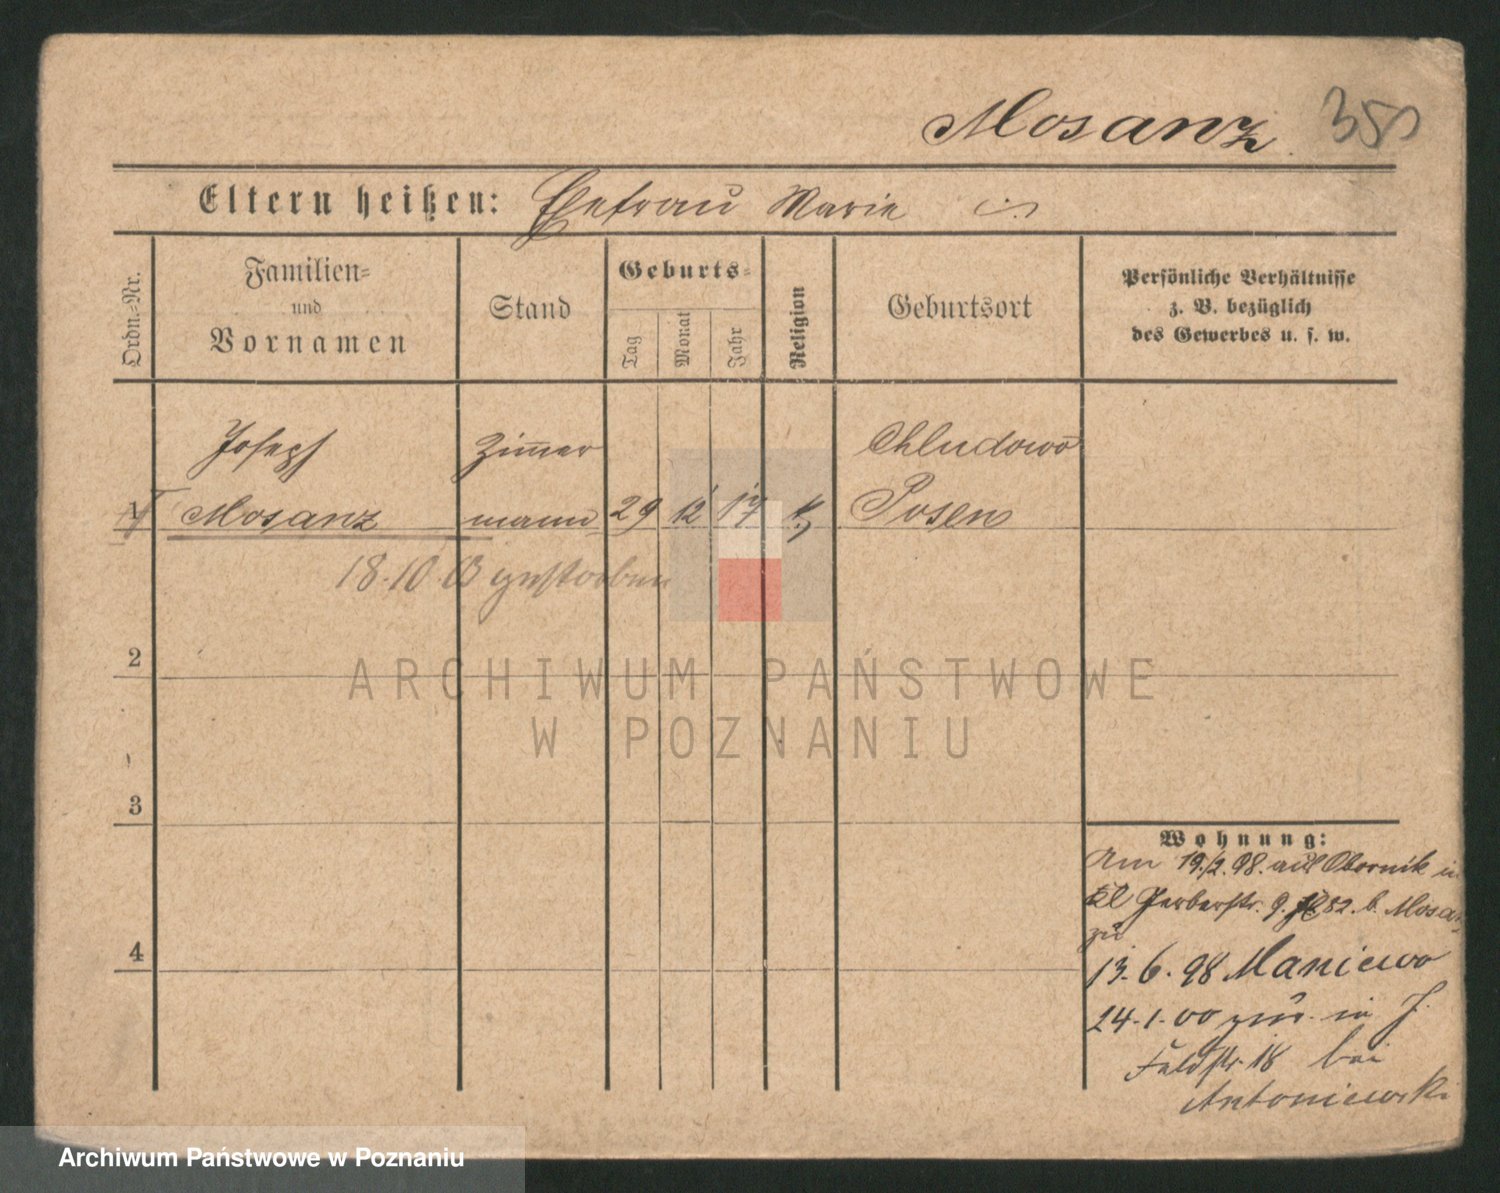 Mosanz 350
Eltern heißen: Ehefrau Marie
Ordn.=Nr.
Familien=
und
Vornamen
Stand
Geburts=
Tag
Monat
Jahr
Religion
Geburtsort
Persönliche Verhältnisse
z. B. bezüglich
des Gewerbes u. s. w.
Joseph Zimmer Chludowo
1 Mosanz mann 29 12 17 k Posen
18.10.03 gestorben
2
ARCHIWUM PAŃSTWOWE
W POZNANIU
3
Wohnung:
Am 19./2. 98. aus Obornik in
Kl Gerberstr. 9. b. Mosanz
zu
13.6.98 Maniewo
24.1.00 zur. in J.
Feldstr. 18 bei
Antoniewski
4
Archiwum Państwowe w Poznaniu